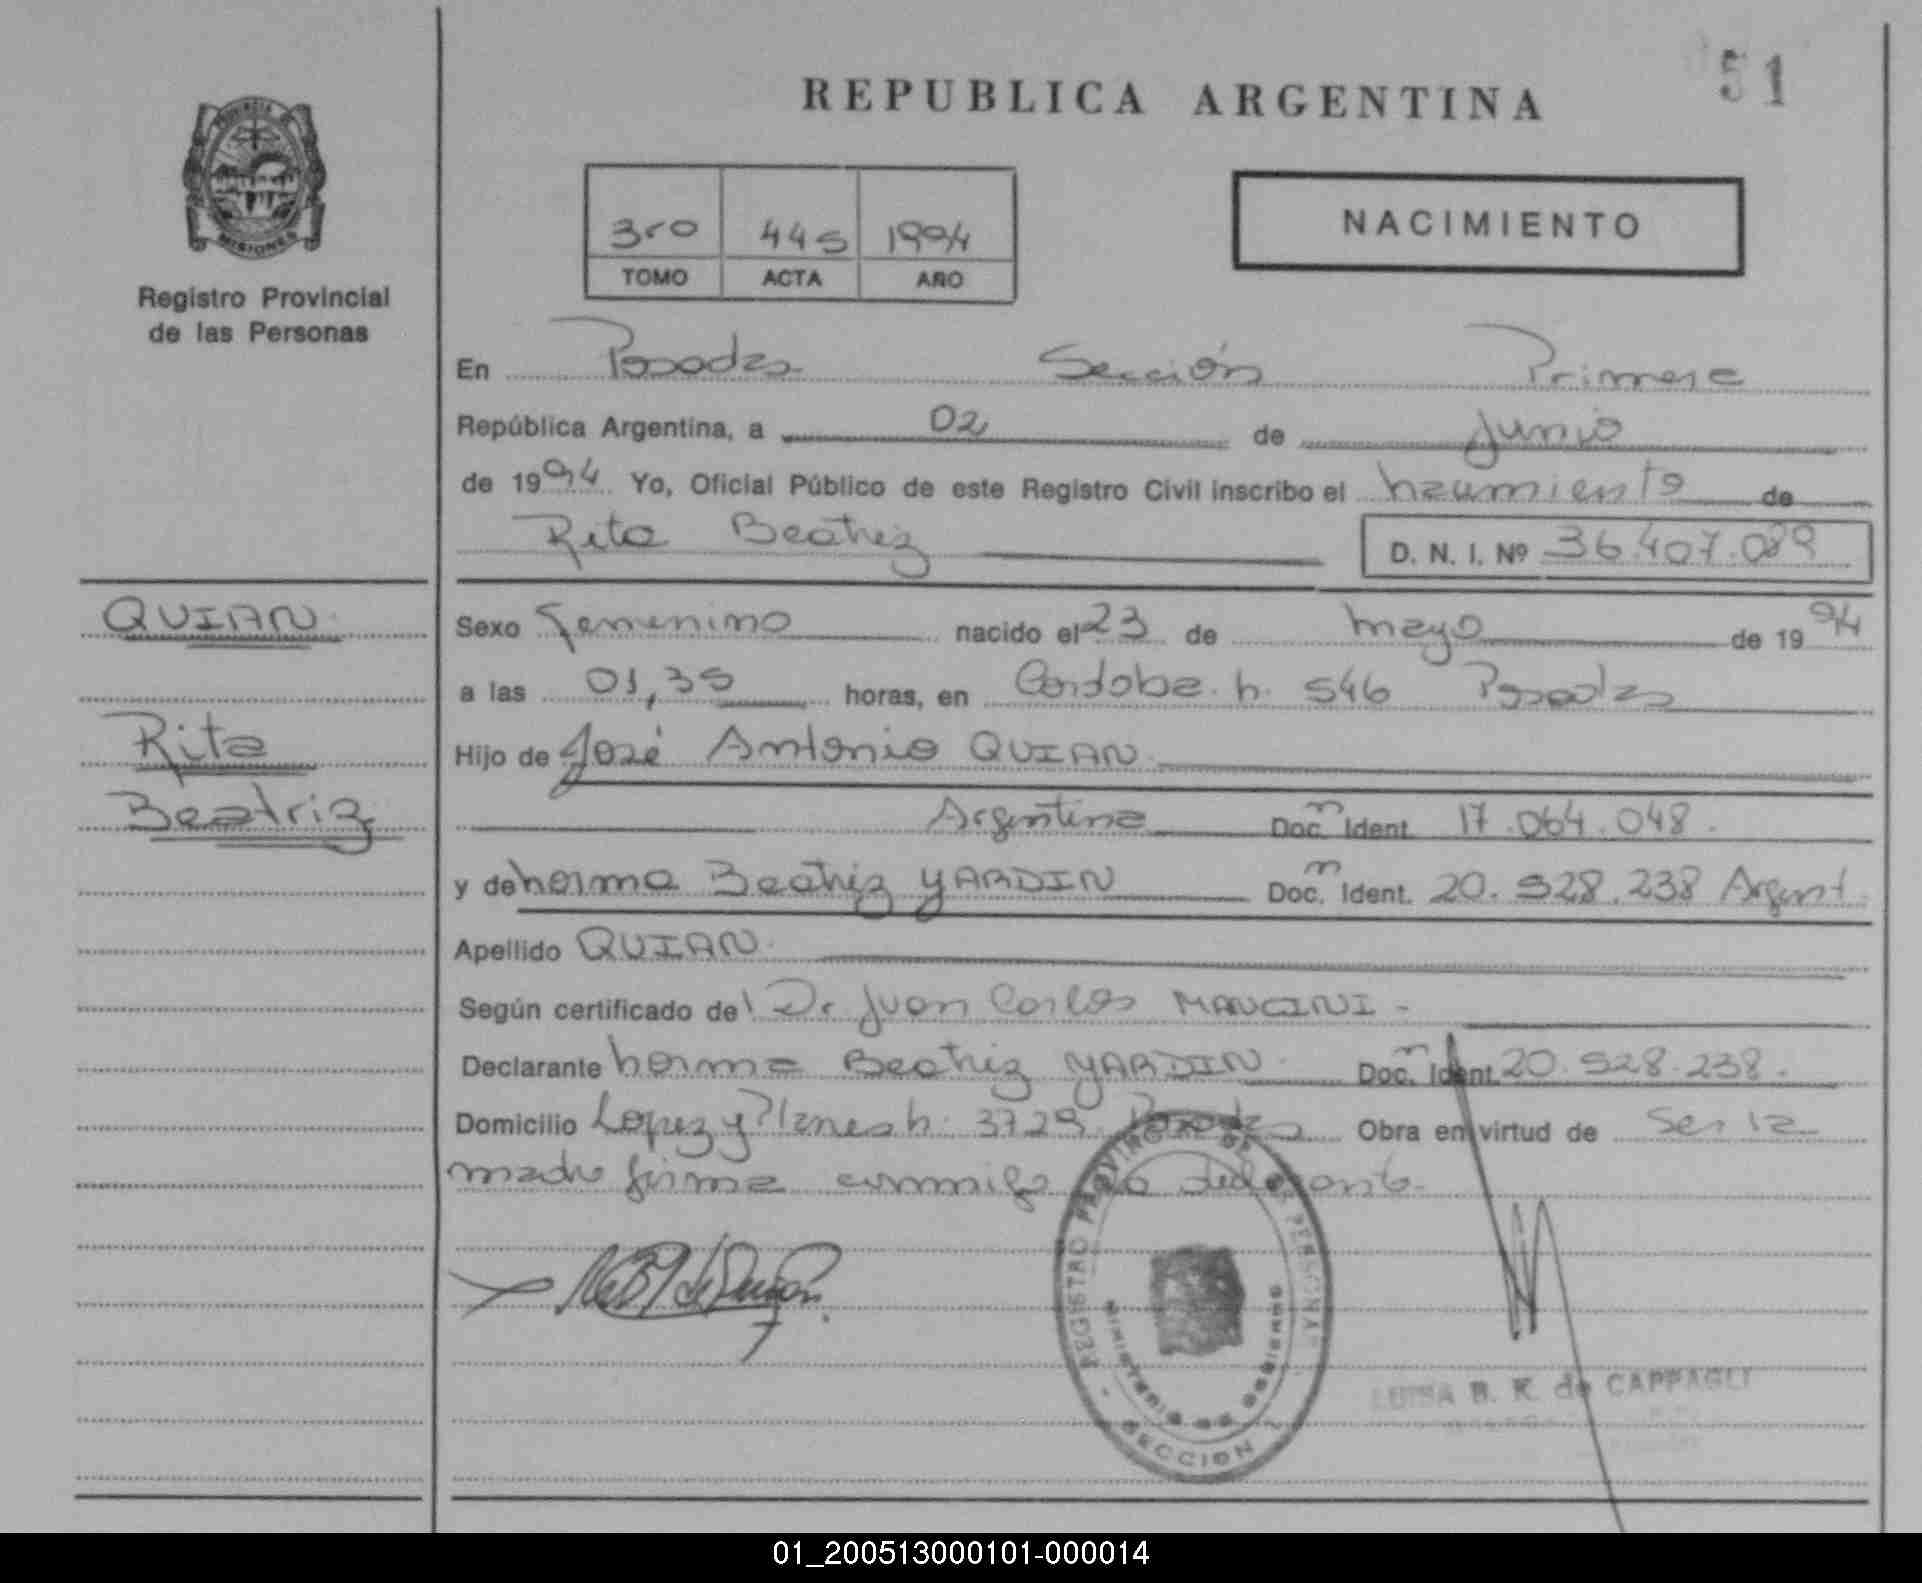 51
REPUBLICA ARGENTINA
PROVINCIA DE
MISIONES
Registro Provincial
de las Personas
3ro 445 1994
TOMO ACTA AÑO
NACIMIENTO
En Posadas Sección Primera
República Argentina, a 02 de Junio
de 1994 Yo, Oficial Público de este Registro Civil inscribo el nacimiento de
Rita Beatriz D. N. I. Nº 36.407.089
QUIAN
Rita
Beatriz
Sexo femenino nacido el 23 de mayo de 1994
a las 01,35 horas, en Cordoba n. 546 Posadas
Hijo de José Antonio QUIAN
Argentina Doc. n Ident. 17.064.048.
y de norma Beatriz YARDIN Doc. n Ident. 20.528.238 Argent.
Apellido QUIAN.
Según certificado del Dr Juan Carlos MANCINI -
Declarante norma Beatriz YARDIN Doc. n Ident. 20.528.238.
Domicilio Lopez y Planes n. 3729 Posadas Obra en virtud de ser la
madre firma conmigo la declarante
REGISTRO PROVINCIAL DE LAS PERSONAS
MINISTERIO DE GOBIERNO
- SECCION 1
LUISA B. K. de CAPPAGLI
01_200513000101-000014